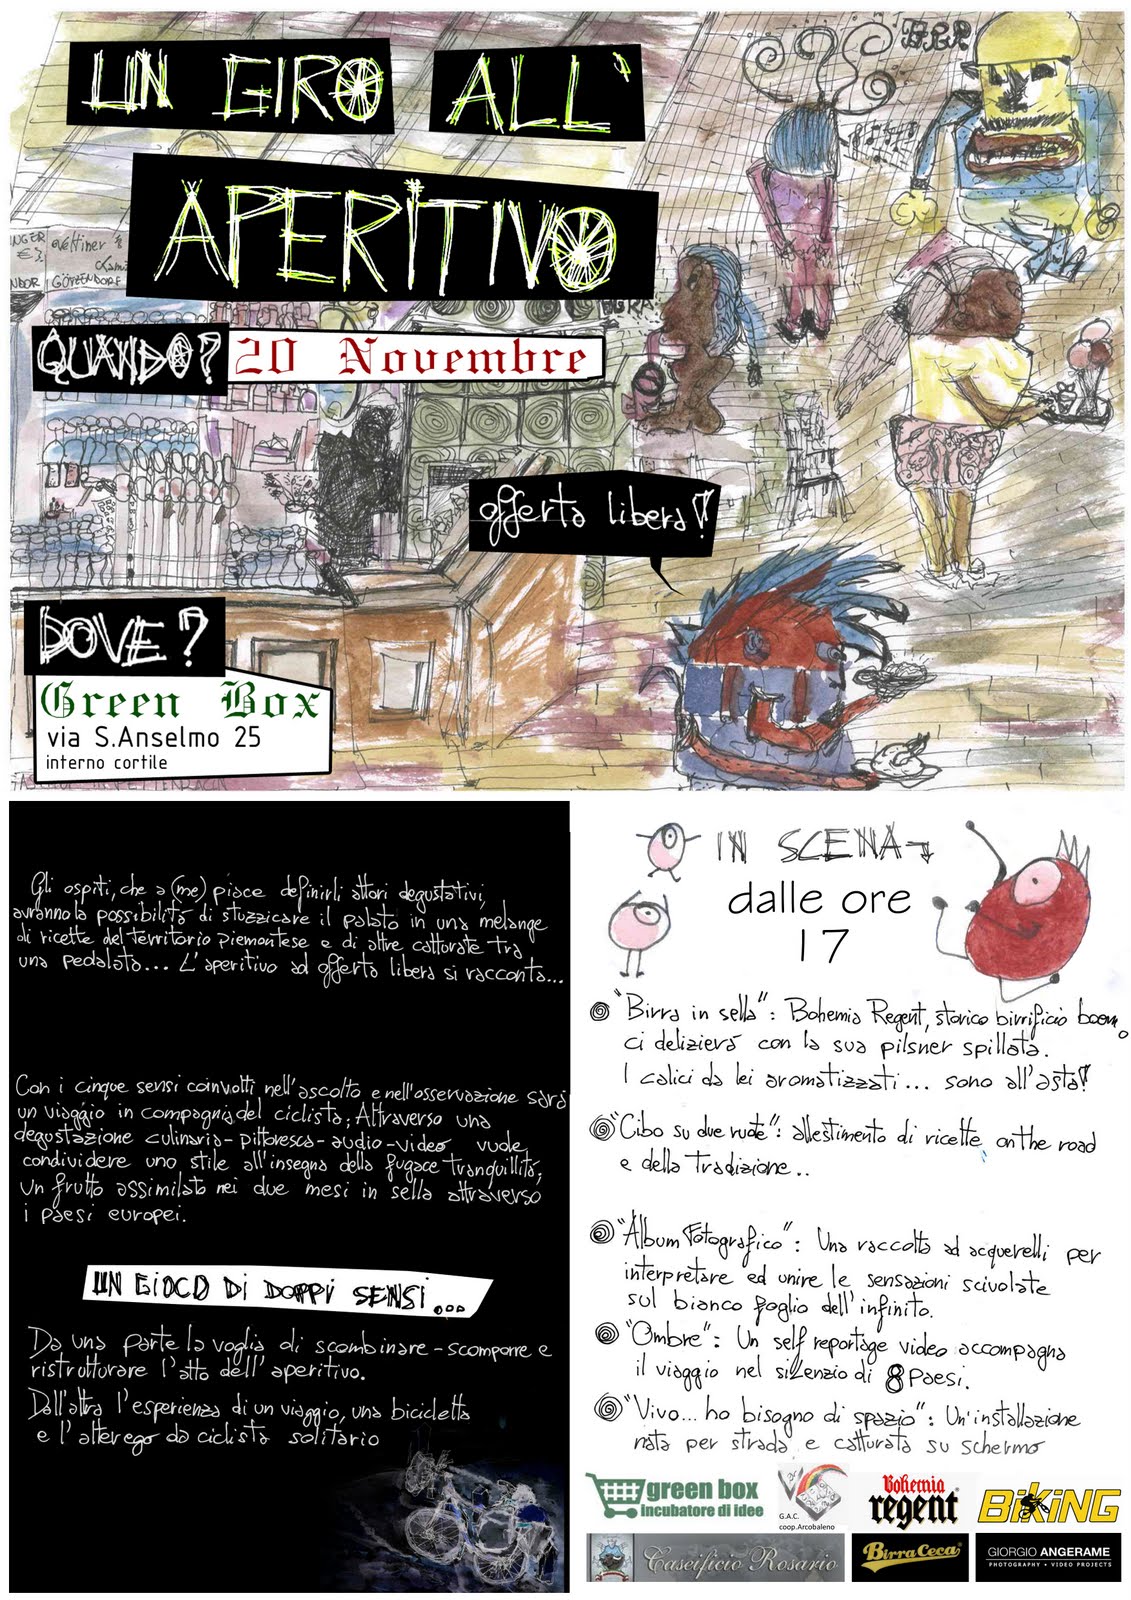 UN GIRO ALL'
APERITIVO
QUANDO? 20 Novembre
offerta libera!
DOVE?
Green Box
via S.Anselmo 25
interno cortile
Gli ospiti, che a (me) piace definirli attori degustativi,
avranno la possibilità di stuzzicare il palato in una melange
di ricette del territorio piemontese e di altre catturate tra
una pedalata... L'aperitivo ad offerta libera si racconta...
Con i cinque sensi coinvolti nell'ascolto e nell'osservazione sarà
un viaggio in compagnia del ciclista; Attraverso una
degustazione culinaria-pittoresca-audio-video vuole
condividere uno stile all'insegna della fugace tranquillità,
un frutto assimilato nei due mesi in sella attraverso
i paesi europei.
UN GIOCO DI DOPPI SENSI...
Da una parte la voglia di scombinare-scomporre e
ristrutturare l'atto dell'aperitivo.
Dall'altra l'esperienza di un viaggio, una bicicletta
e l'alterego da ciclista solitario
IN SCENA
dalle ore
17
"Birra in sella": Bohemia Regent, storico birrificio boemo
ci delizierà con la sua pilsner spillata.
I calici da lei aromatizzati... sono all'asta!
"Cibo su due ruote": allestimento di ricette on the road
e della tradizione..
"Album Fotografico": Una raccolta ad acquerelli per
interpretare ed unire le sensazioni scivolate
sul bianco foglio dell'infinito.
"Ombre": Un self reportage video accompagna
il viaggio nel silenzio di 8 paesi.
"Vivo... ho bisogno di spazio": Un'installazione
nata per strada e catturata su schermo
green box
incubatore di idee
G.A.C.
coop.Arcobaleno
Bohemia
regent
BIKING
Caseificio Rosario
Birra Ceca
GIORGIO ANGERAME
PHOTOGRAPHY • VIDEO PROJECTS